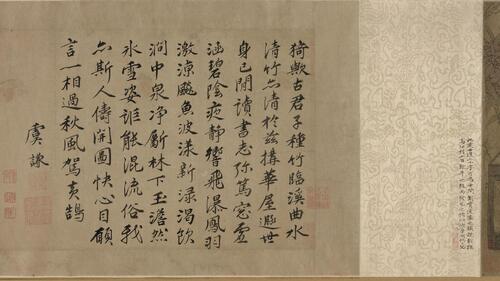 猗歟古君子種竹臨溪曲水
清竹亦清於茲構華屋遯世
身已閒讀書志弥篤窓虛
涵碧陰夜静響飛瀑鳳羽
激涼飈魚波漾新渌渴飲
澗中泉净斸林下玉澹然
氷雪姿誰能混流俗我
亦斯人儔開圖快心目願
言一相過秋風駕黄鵠
虞謙